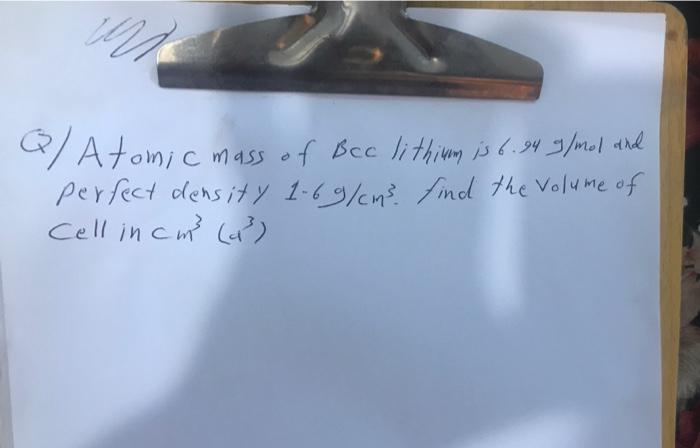 Q/ Atomic mass of Bcc lithium is 6.94 g/mol and
perfect density 1-6 g/cm³. find the volume of
cell in cm³ (a³)